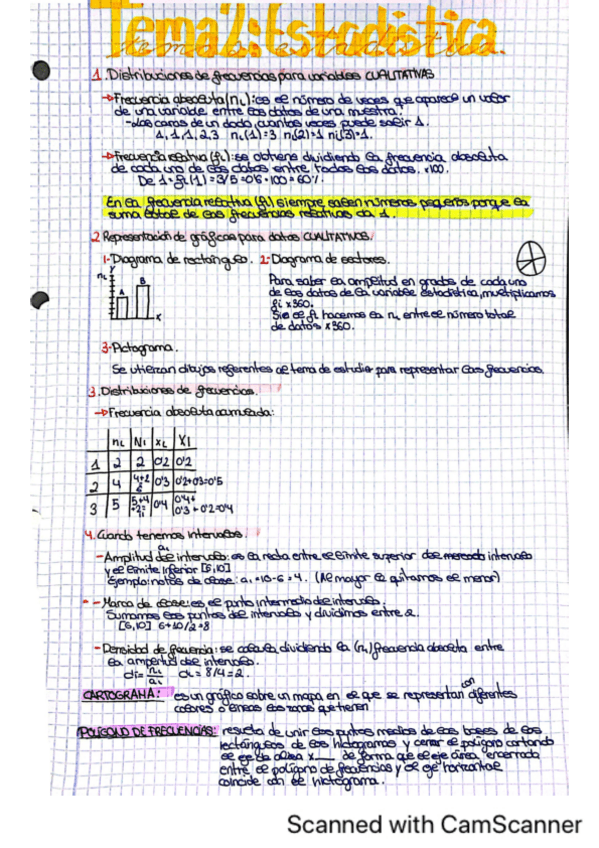 Tema 2: Estadística
temas estadística.
1. Distribuciones de frecuencias para variables CUALITATIVAS
→Frecuencia absoluta(ni): es el número de veces que aparece un valor
de una variable entre los datos de una muestra.
-Las caras de un dado, cuantas veces puede salir 1.
1,1,1,2,3 ni(1)=3 ni(2)=1 ni(3)=1.
→Frecuencia relativa (fi): se obtiene dividiendo la frecuencia absoluta
de cada uno de los datos entre todos los datos. ×100.
De 1 = fi(1) = 3/5 = 0'6 · 100 = 60%.
En la frecuencia relativa (fi) siempre salen números pequeños porque la
suma total de las frecuencias relativas da 1.
2. Representación de gráficas para datos CUALITATIVOS.
1-Diagrama de rectángulos. 2-Diagrama de sectores.
Y
ni
A
B
X
Para saber la amplitud en grados de cada uno
de los datos de la variable estadística, multiplicamos
fi ×360.
Sin el fi hacemos la ni entre el número total
de datos ×360.
3-Pictograma.
Se utilizan dibujos referentes al tema de estudio para representar las frecuencias.
3. Distribuciones de frecuencias.
→Frecuencia absoluta acumulada:
ni Ni xi XI
1 2 2 0'2 0'2
2 4 4+2 6 0'3 0'2+0'3=0'5
3 5 5+4 +2= 11 0'4 0'4+ 0'3+0'2=0'4
4. Cuando tenemos intervalos.
ai
-Amplitud del intervalo: es la resta entre el límite superior del intervalo
y el límite inferior [6,10]
Ejemplo: notas de clase: ai = 10-6 = 4. (Al mayor le quitamos el menor)
- Marca de clase: es el punto intermedio del intervalo.
Sumamos los puntos del intervalo y dividimos entre 2.
[6,10] 6+10/2=8
-Densidad de frecuencia: se calcula dividiendo la (ni) frecuencia absoluta entre
la amplitud del intervalo.
di= ni/ai di = 8/4 = 2.
CARTOGRAMA: es un gráfico sobre un mapa en el que se representan con diferentes
colores o líneas las zonas que tienen
POLÍGONO DE FRECUENCIAS: resulta de unir los puntos medios de las bases de los
rectángulos de los histogramas y cerrar el polígono cortando
el eje de x de forma que el eje área encerrada
entre el polígono de frecuencias y el eje horizontal
coincide con el histograma.
Scanned with CamScanner